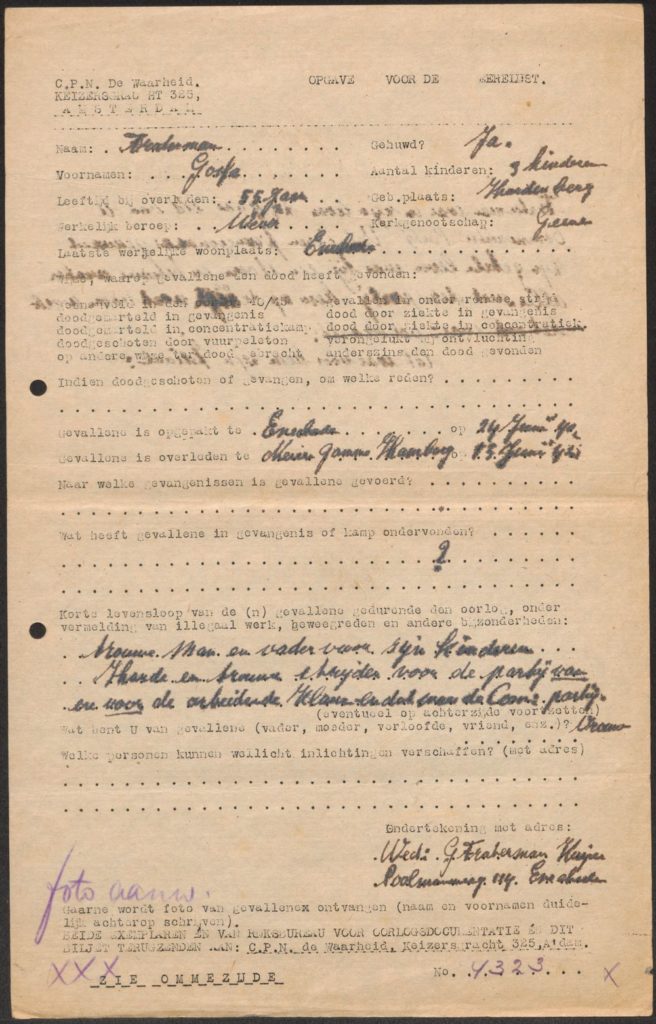 C.P.N. De Waarheid. OPGAVE VOOR DE EERELIJST.
KEIZERSGRACHT 325,
AMSTERDAM
Naam: Gehuwd? Ja.
Voornamen: Aantal kinderen: 3 kinderen
Leeftijd bij overlijden: 55 Jaar Geb.plaats: Hardenberg
Werkelijk beroep: Wever Kerkgenootschap: Geene
Laatste werkelijke woonplaats:
Wijze, waarop gevallene den dood heeft gevonden:
Gesneuveld in den 10/15 gevallen in onder rondse strijd
doodgemarteld in gevangenis dood door ziekte in gevangenis
doodgemarteld in concentratiekamp dood door ziekte in concentratiek
doodgeschoten door vuurpeloton verongelukt bij ontvluchting
op andere wijze ter dood gebracht anderszins den dood gevonden
Indien doodgeschoten of gevangen, om welke reden?
Gevallene is opgepakt te op 24 Juni
Gevallene is overleden te Hamburg op Juni
Naar welke gevangenissen is gevallene gevoerd?
Wat heeft gevallene in gevangenis of kamp ondervonden?
?
Korte levensloop van de (n) gevallene gedurende den oorlog, onder
vermelding van illegaal werk, beweegreden en andere bijzonderheden:
trouwe man en vader voor zijn kinderen
Harde en trouwe strijder voor de partij
voor de arbeidende Klasse en dat was de Com. partij.
(eventueel op achterzijde voortzetten)
Wat bent U van gevallene (vader, moeder, verloofde, vriend, enz.)? Vrouw
Welke personen kunnen wellicht inlichtingen verschaffen? (met adres)
Ondertekening met adres:
Wed: G
114 Enschede
foto aanw.
Gaarne wordt foto van gevallenex ontvangen (naam en voornamen duide-
lijk achterop schrijven).
BEIDE EXEMPLAREN EN VAN RIJKSBUREAU VOOR OORLOGSDOCUMENTATIE EN DIT
BILJET TERUGZENDEN AAN: C.P.N. de Waarheid. Keizersgracht 325, A'dam.
XXX ZIE OMMEZIJDE No. 4323 X